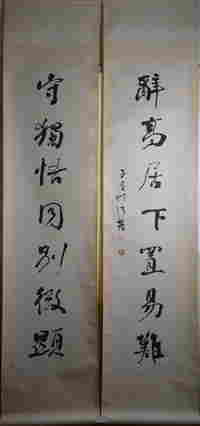 辭高居下置易難
守獨悟同別微顯